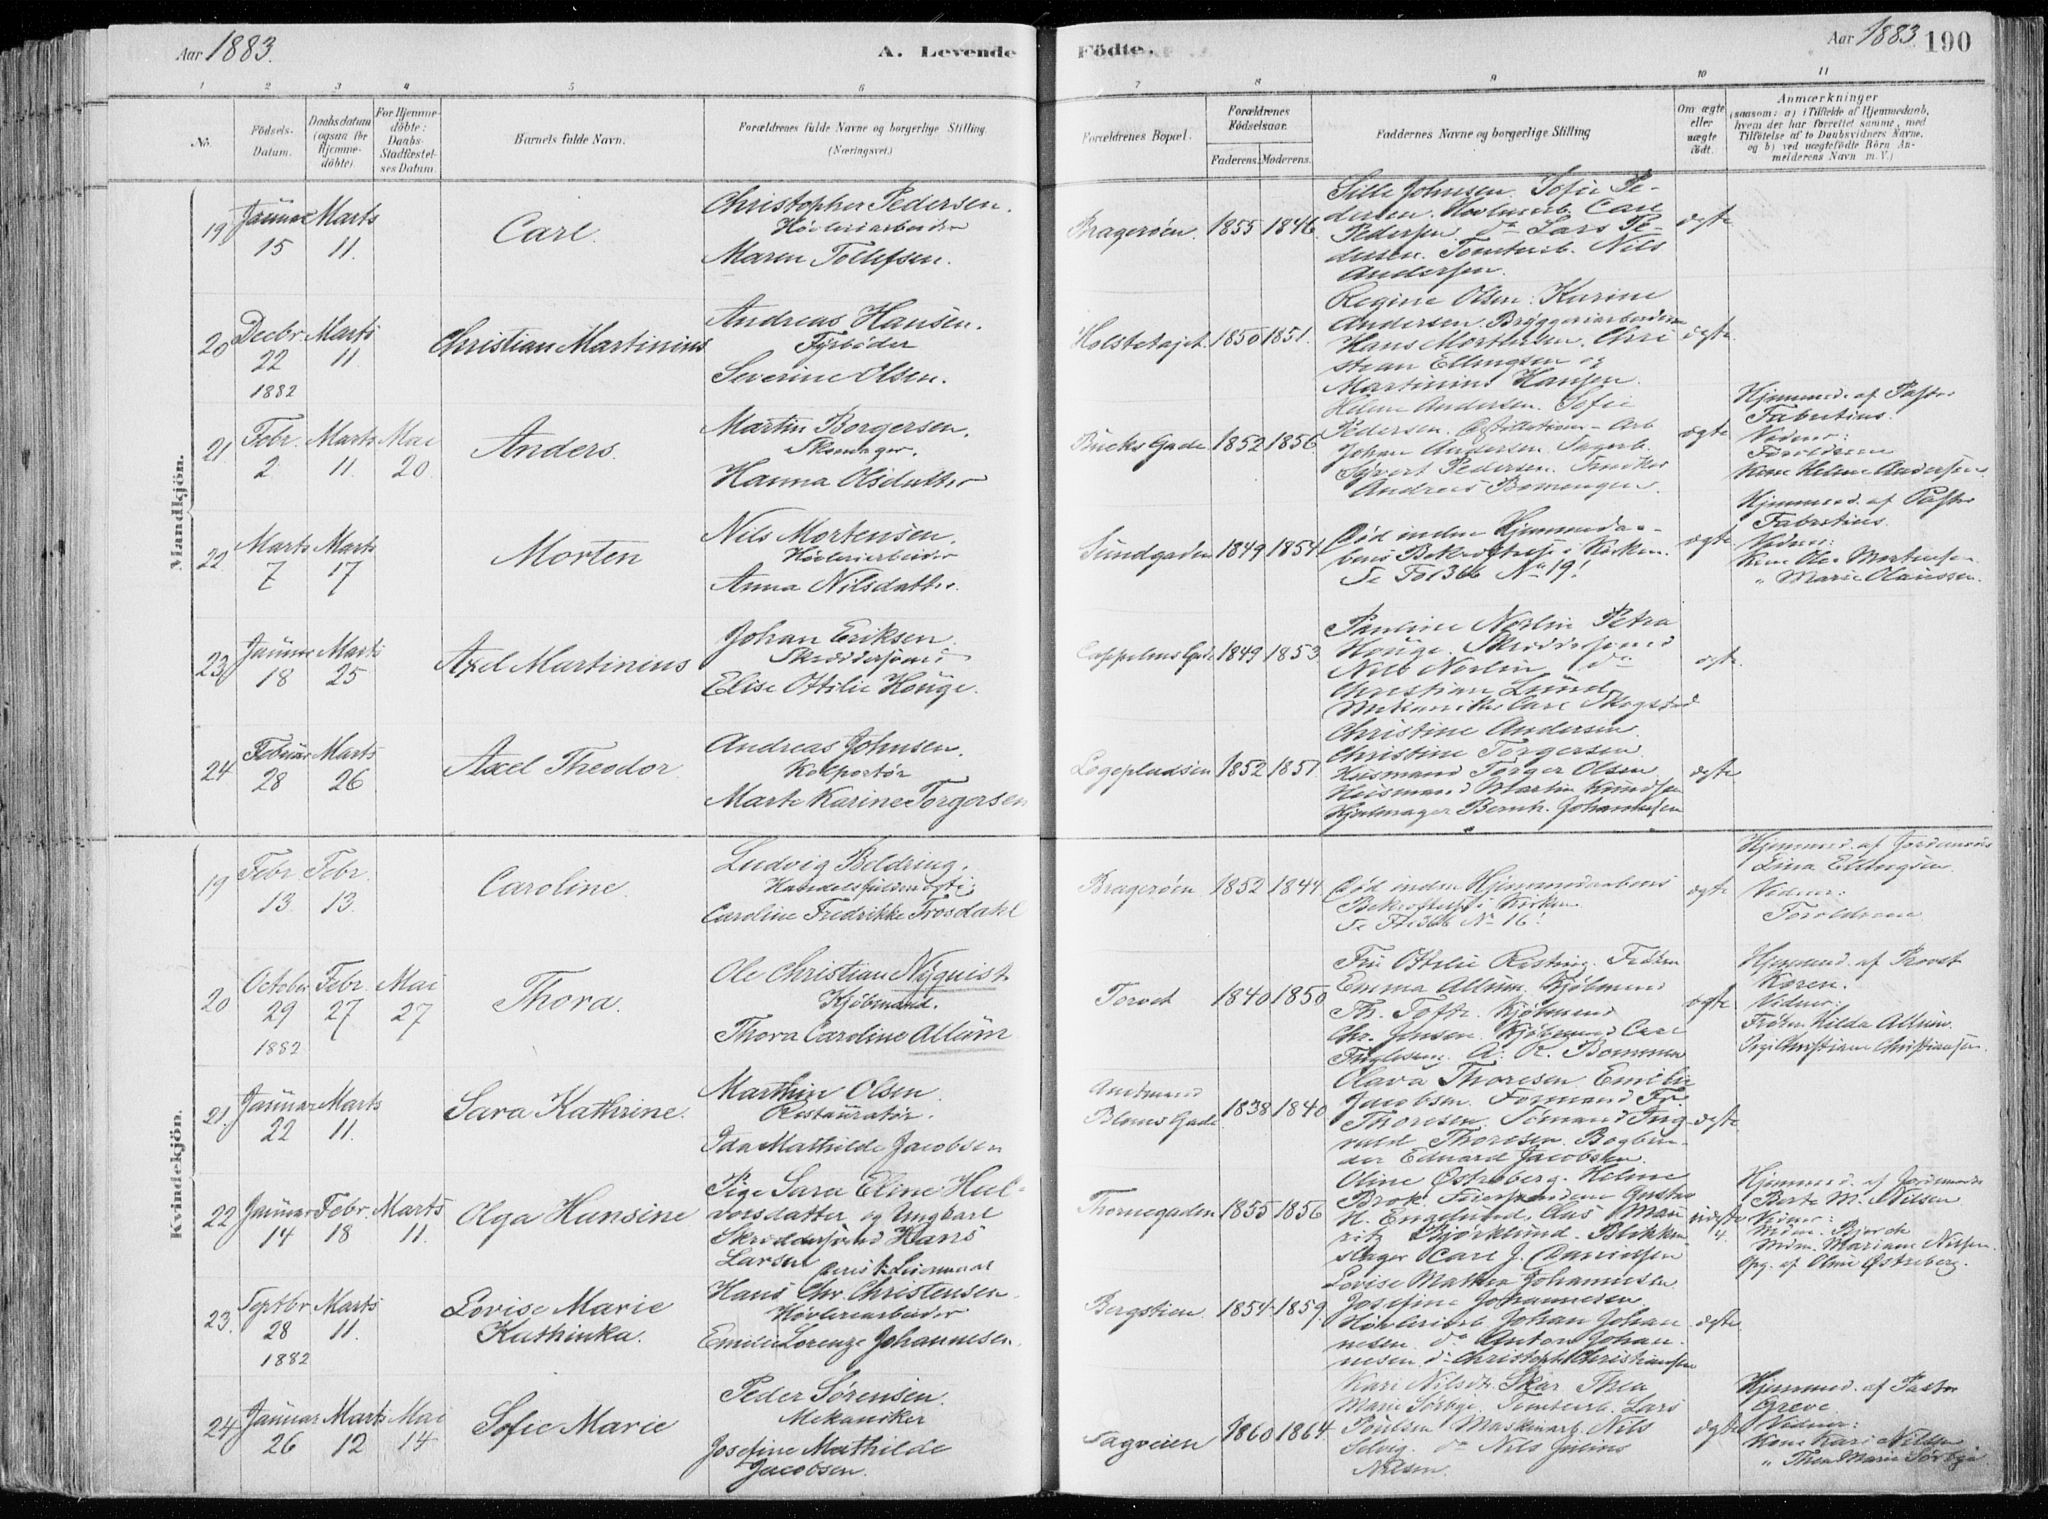 Aar 1883.
A. Levende Födte.
Aar 1883
190
1 2 3 4 5 6 7 8 9 10 11
No.
Födsels-Datum.
Daabsdatum (ogsaa for Hjemme-döbte).
For Hjemme-döbte: Daabs-Stadfæstel-ses Datum.
Barnets fulde Navn.
Forældrenes fulde Navne og borgerlige Stilling (Næringsvei.)
Forældrenes Bopæl.
Forældrenes Födselsaar.
Faderens. Moderens.
Faddernes Navne og borgerlige Stilling
Om ægte eller uægte födt.
Anmærkninger
(saasom: a) i Tilfælde af Hjemmedaab,
hvem der har forrettet samme, med
Tilföielse af to Daabsvidners Navne,
og b) ved uægtefödte Börn An-
melderens Navn m. V.)
Mandkjön.
19 Januar 15 Marts 11.
Carl.
Christopher Pedersen.
Høvleriarbeider
Maren Tollefsen.
Bragerøen. 1855 1846.
Sille Johnsen. Sofie Pe-
dersen. Carl
Pedersen do Lars Pe-
dersen. Tomtearb. Nils
Andersen.
ægte
20 Decbr 22 1882 Marts 11.
Christian Martinius
Andreas Hansen.
Fyrbøder
Severine Olsen.
1850 1851.
Regine Olsen. Karine
Andersen. Bryggeriarbeiderne
Hans Morthensen. Chri
stian Ellingsen og
Martinius Hansen.
ægte.
21. Febr. 2 Marts 11. Mai 20
Anders.
Martin Borgersen.
Skomager.
Hanna Olsdatter
Bucks Gade 1852 1856
Helene Andersen. Sofie
Pedersen. Arb
Johan Andersen. Sagarb.
Syvert Pedersen. Snedker
Andreas Bomengen.
ægte
Hjemmed. af Pastor
Fabritius.
Vidner:
Forældrene
Kone Helene Andersen
22 Marts 7 Marts 17
Morten
Nils Mortensen.
Høvleriarbeider
Anna Nilsdatter.
Sundgaden 1849 1854
Død inden Hjemmedaa-
bens Bekræftelse i Kirken.
Se Fol 366 No 19!
ægte.
Hjemmed. af Pastor
Fabritius.
Vidner:
Kone Ole Mortensen
" Marie Olaussen.
23 Januar 18 Marts 25
Axel Martinius
Johan Eriksen.
Skræddersvend
Elise Ottilie Houge.
Cappelens Gade 1849 1853
Pauline Norlin Petra
Houge. Skræddersvend
Nils Norlin do
Christian Lund
Mekaniker Carl Skogstad
ægte.
24 Februar 28 Marts 26
Axel Theodor
Andreas Johnsen.
Kolportør
Marte Karine Torgersen
Løgepladsen 1852 1851
Christine Andersen
Christine Torgersen
Husmand Torger Olsen
Husmand Martin Knudsen
Hjulmager Bernh. Johannesen
ægte
Kvindekjön.
19 Febr. 13 Febr. 13.
Caroline.
Ludvig Beldring.
Handelsfuldmægtig
Caroline Fredrikke Trosdahl
Bragerøen 1852 1844
Død inden Hjemmedaabens
Bekræftelse i Kirken
Se Fol 366 No 16!
ægte
Hjemmed. af Jordmor
Lina Ellingsen
Vidner:
Forældrene
20 October 29 1882 Febr. 27 Mai 27
Thora.
Ole Christian Nyquist
Kjøbmand.
Thora Caroline Allum
Torvet 1840 1850
Fru Ottilie Frøken
Emma Allum. Kjøbmand
Th. Tofte. Kjøbmand
Chr. Jensen. Kjøbmand Carl
Fuglesang. A. K. Bommen
ægte.
Hjemmed. af Provst
Koren.
Vidner:
Frøken Hilda Allum.
Pige Christiane Christiansen.
21. Januar 22 Marts 11.
Sara Kathrine.
Marthin Olsen.
Restauratør.
Ida Mathilde Jacobsen
Amtmand Bloms Gade 1838 1840
Olava Thoresen. Emilie
Jacobsen. Formand Fr.
Thoresen. Sømand Ing-
vald Thoresen. Bogbin-
der Eduard Jacobsen.
ægte
22 Januar 14 Febr. 18 Marts 11.
Olga Hansine
Pige Sara Eline Hal-
vorsdatter og Ungkarl
Skræddersvend Hans
Larsen
1ste Leiermaal
Thornegaden 1855 1856
Oline Østreberg. Helene
Brok. Gustav
H. Englund, Clas Mau
ritz Bjørklund. Blikken
slager Carl J. Danielsen
uægte
Hjemmed. af Jordmor
Berte M. Nilsen
Vidner:
Mdm. Bjerch
Mdm. Mariane Nilsen.
Opg. af Oline Østreberg.
23. Septbr 28 1882 Marts 11.
Lovise Marie
Kathinka.
Hans Chr. Christensen.
Høvleriarbeider
Emilie Lorenze Johannesen.
Bergstien 1854 1859.
Lovise Mathea Johannesen
Josefine Johannesen
Høvleriarb Johan Johan
nesen. do Anton Johan-
nesen. do Christoph Christiansen
ægte.
24 Januar 26 Marts 12 Mai 14
Sofie Marie
Peder Sørensen.
Mekaniker
Josefine Mathilde
Jacobsen.
Sagveien 1860 1864
Kari Nilsen Skar Thea
Marie Sørbye. Tomtearb. Lars
Poulsen Maskinarb. Nils
Solvig. do Nils Julius
Nilsen.
ægte
Hjemmed. af Pastor
Greve.
Vidner:
Kone Kari Nilsen
" Thea Marie Sørbye